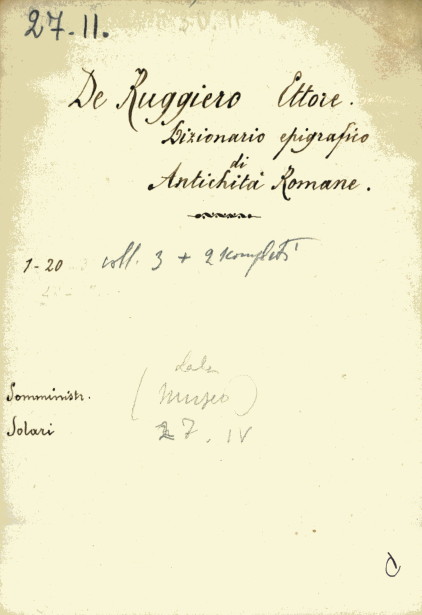 27-11.
De Ruggiero Ettore.
Dizionario epigrafico
di
Antichità Romane.
1-20 voll. 3 + 2 kompleti
Somministr.
Solari
(Museo)
27. IV